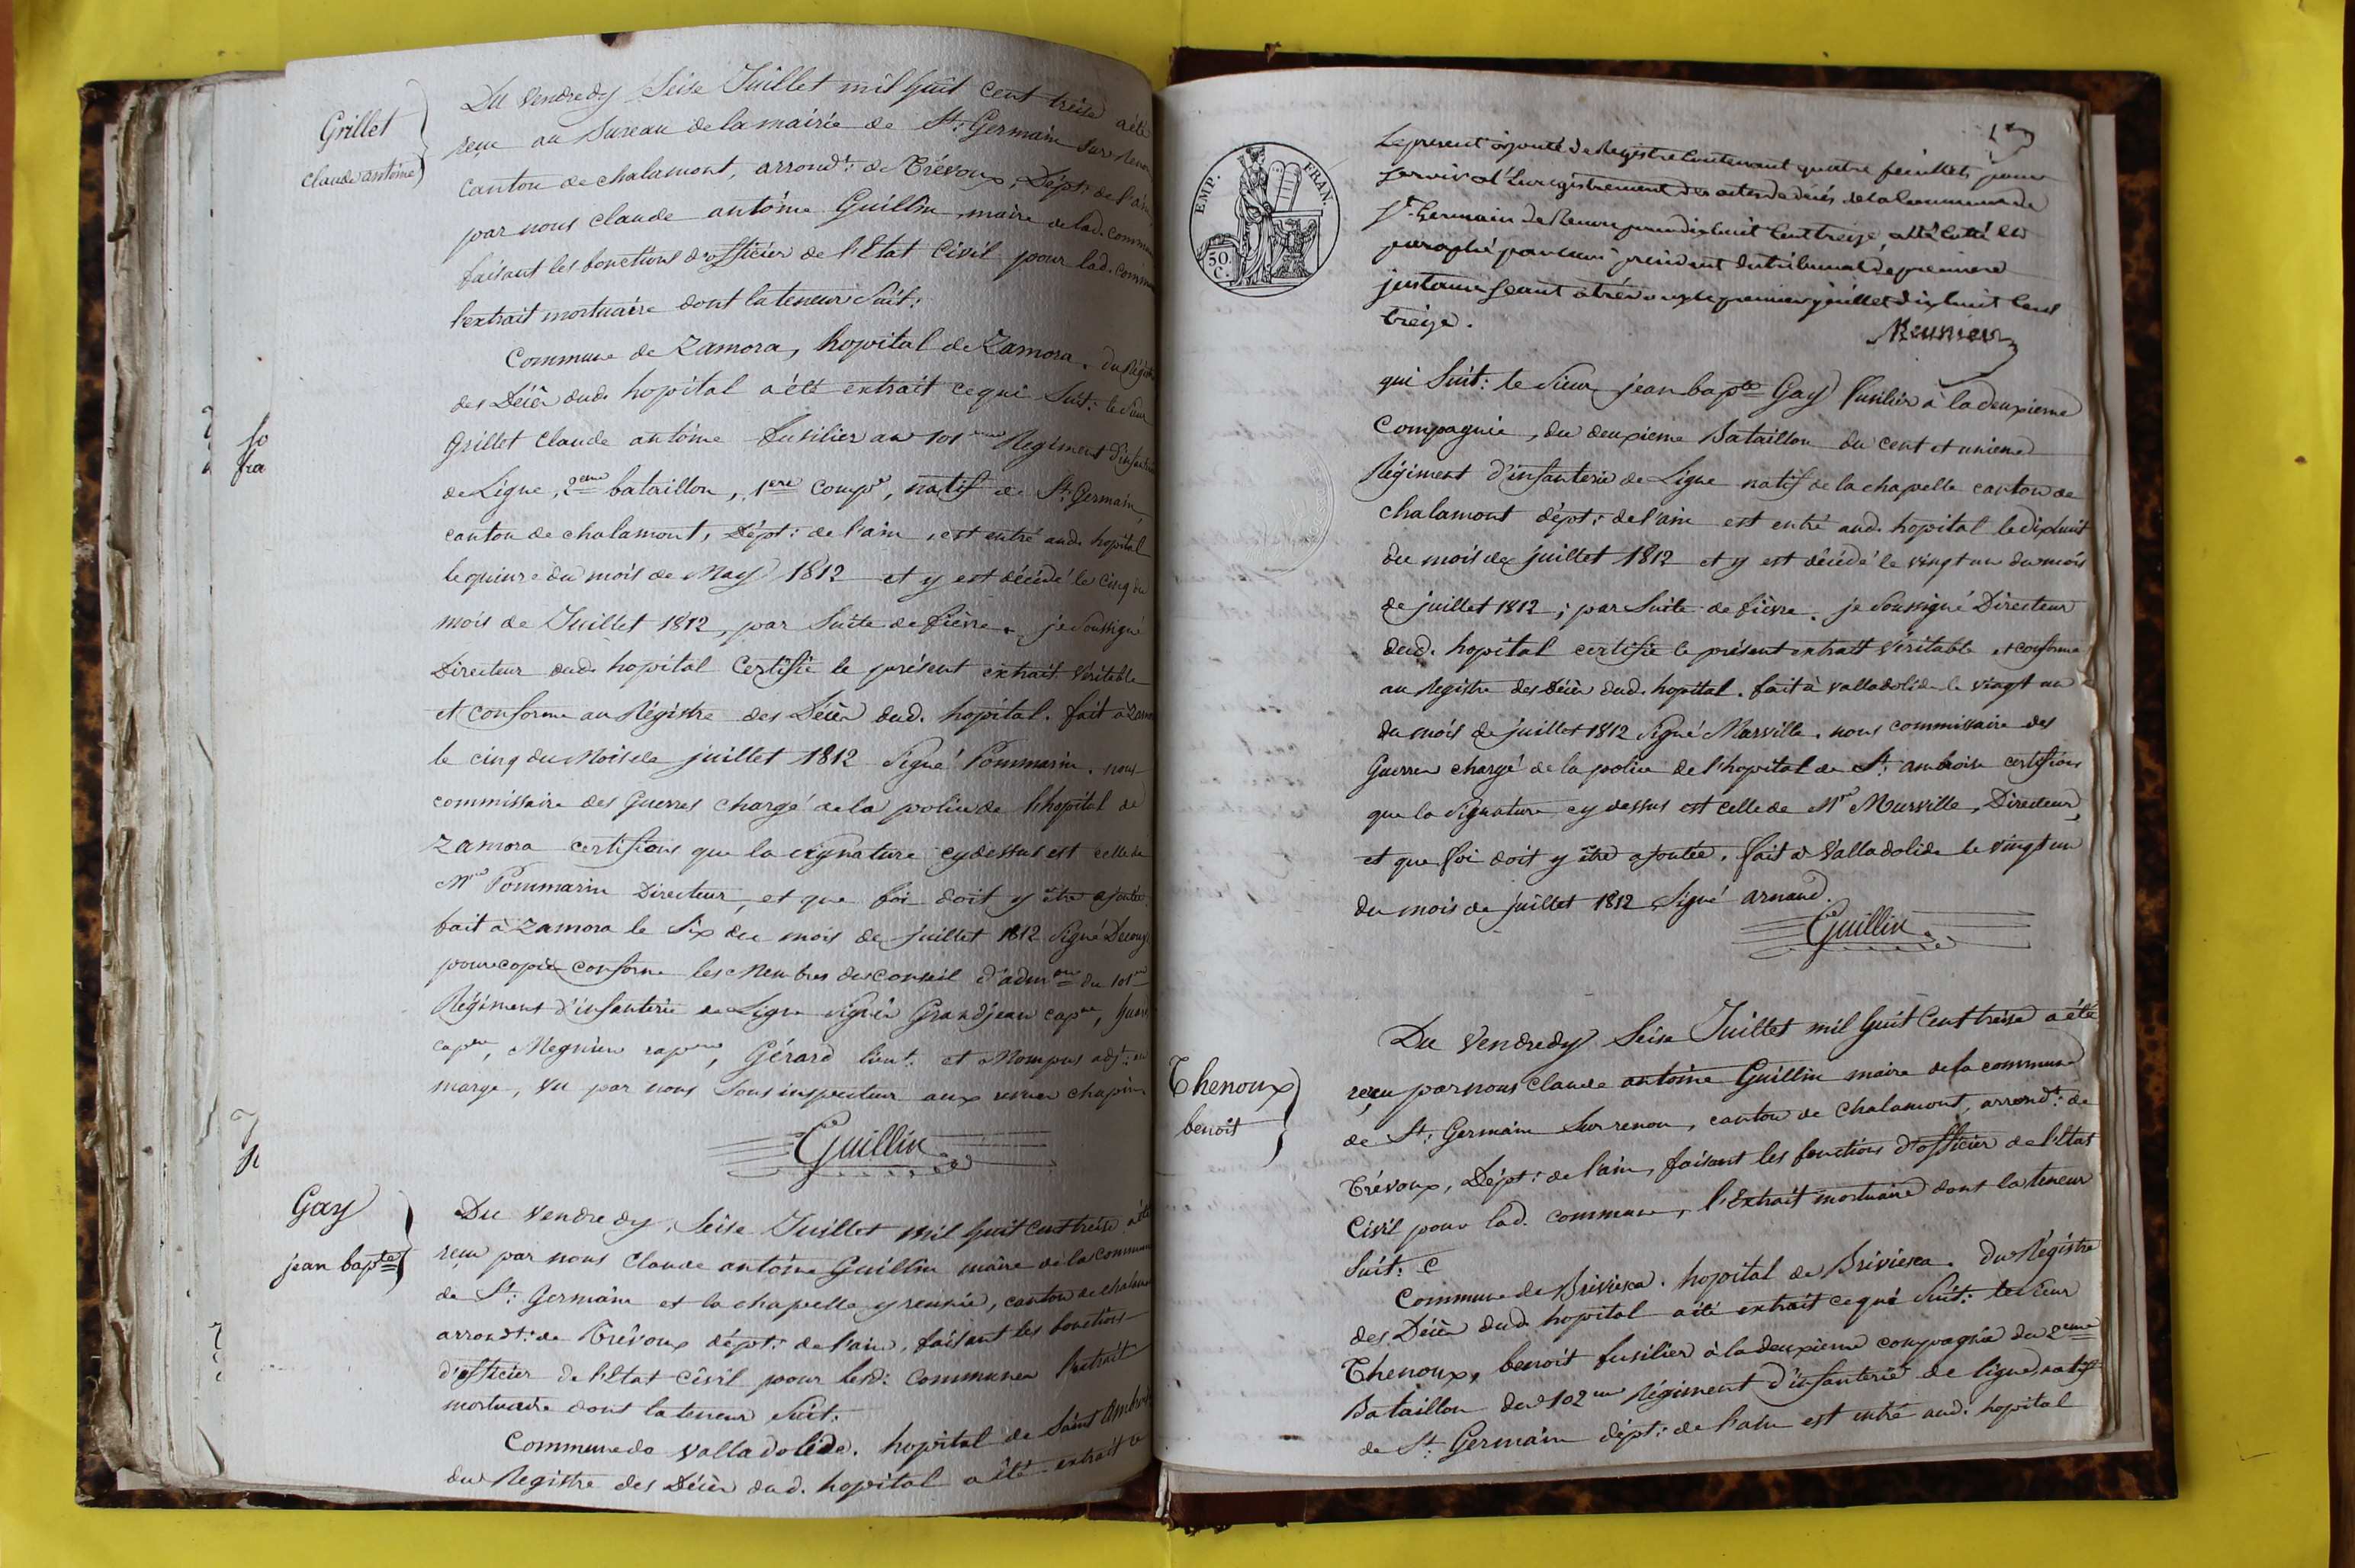 Grillet
claude antoine
Du Vendredy Seise Juillet mil huit Cent treise a été
reçu au Bureau de la mairie de St: Germain Sur Renon
Canton de chalamont, arrondt: de Trévoux, Dépt: de l'ain,
par nous claude antoine Guillin, maire de lad. commune
faisant les fonctions d'officier de l'Etat Civil pour lad. commune
l'extrait mortuaire dont la teneur Suit:
Commune de Zamora, hopital de Zamora. du Régistre
des Décès dud. hopital a été extrait ce qui Suit: le Sieur
Grillet Claude antoine fusilier au 101eme Régiment d'infanterie
de Ligne, 2eme bataillon, 1ere Compe, natif de St: Germain,
canton de chalamont, Dépt: de l'ain, est entré aud. hopital
le quinze du mois de May 1812 et y est décédé le cinq du
mois de Juillet 1812, par Suite de fièvre. je Soussigné
Directeur dud. hopital Certifie le présent extrait Véritable
et Conforme au Régistre des Décès dud. hopital. fait à Zamora
le cinq du Mois de juillet 1812 Signé Pommarin. nous
commissaire des Guerres chargé de la police de l'hopital de
Zamora certifions que la signature cy dessus est celle de
Mr Pommarin Directeur, et que foi doit y être ajoutée.
fait à Zamora le Six du mois de juillet 1812 Signé
pour copie conforme les Membres du Conseil d'admon du 101eme
Régiment d'infanterie de Ligne signés Grandjean capne,
capne, Megnien capne, Gérard lieut. et Mompus adjt: en
marge, Vu par nous Sous inspecteur aux revues chapuis
Guillin
Gay
jean bapte
Du Vendredy, Seise Juillet mil huit Cent treise a été
reçu par nous Claude antoine Guillin maire de la commune
de St: Germain et la chapelle y réunie, canton de chalamont
arrondt: de Trévoux dépt: de l'ain, faisant les fonctions
d'officier de l'Etat Civil pour lesd: Communes l'extrait
mortuaire dont la teneur Suit:
Commune de Valladolide. hopital de Saint Ambroise
du Registre des Décès dud. hopital a été extrait ce
EMP. FRAN.
50.
C.
Le présent ajouté de Registre Contenant quatre feuillets, pour
servir à l'Enregistrement des actes de décès de la Commune de
St. Germain de Renon pendix huit Cent treize, a été Cotté et
paraphé par nous président du tribunal de premiere
jnstance Séant à trévoux le premier juillet dix huit Cent
treize.
Meunier
qui Suit: le Sieur jean bapte Gay fusilier à la deuxieme
Compagnie, du deuxieme Bataillon du cent et unieme
Régiment d'infanterie de Ligne natif de la chapelle canton de
chalamont dépt: de l'ain est entré aud. hopital le dixhuit
du mois de juillet 1812 et y est décédé le vingt un du mois
de juillet 1812; par Suite de fièvre. je Soussigné Directeur
dud. hopital certifie le présent extrait Véritable et conforme
au Registre des Décès dud. hopital. fait à Valladolide le vingt un
du mois de juillet 1812 Signé Marville. nous commissaire des
Guerres chargé de la police de l'hopital de St: ambroise certifions
que la signature cy dessus est celle de Mr Murville, Directeur,
et que foi doit y être ajoutée. fait à Valladolide le vingt un
du mois de juillet 1812 Signé arnaud.
Guillin
Thenoux
benoit
Du Vendredy Seise Juillet mil huit Cent treise a été
reçu par nous Claude antoine Guillin maire de la commune
de St: Germain Sur renon, canton de Chalamont, arrondt: de
Trévoux, Dépt: de l'ain, faisant les fonctions d'officier de l'Etat
Civil pour lad. commune, l'Extrait mortuaire dont la teneur
Suit:
Commune de Briviesca. hopital de Briviesca. Du Régistre
des Décès dud. hopital a été extrait ce qui Suit: le Sieur
Thenoux, benoit fusilier à la deuxieme compagnie du 2eme
Bataillon du 102eme Régiment d'infanterie de ligne, natif
de St: Germain dépt: de l'ain est entré aud. hopital